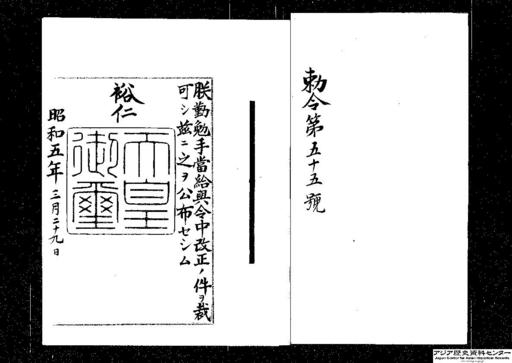 勅令第五十五號
朕勤勉手當給與令中改正ノ件ヲ裁
可シ茲ニ之ヲ公布セシム
裕仁
天皇
御璽
昭和五年三月二十九日
アジア歴史資料センター
Japan Center for Asian Historical Records